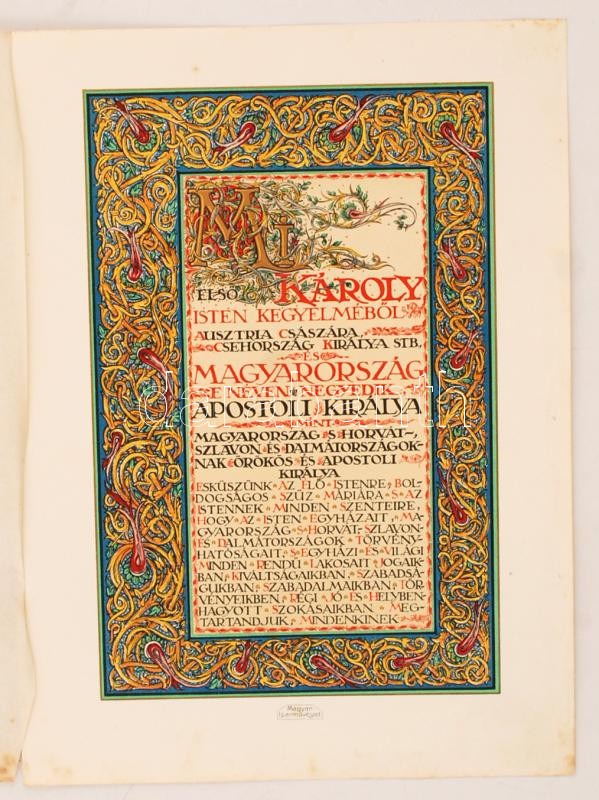 MI
ELSŐ KÁROLY
ISTEN KEGYELMÉBŐL
AUSZTRIA CSÁSZÁRA,
CSEHORSZÁG KIRÁLYA STB.
ÉS
MAGYARORSZÁG
E NÉVEN NEGYEDIK
APOSTOLI KIRÁLYA
MINT
MAGYARORSZÁG S HORVÁT-,
SZLAVON ÉS DALMÁTORSZÁGOK-
NAK ÖRÖKÖS ÉS APOSTOLI
KIRÁLYA
ESKÜSZÜNK AZ ÉLŐ ISTENRE, BOL-
DOGSÁGOS SZŰZ MÁRIÁRA S AZ
ISTENNEK MINDEN SZENTEIRE,
HOGY AZ ISTEN EGYHÁZAIT, MA-
GYARORSZÁG S HORVÁT-SZLAVON
ÉS DALMÁTORSZÁGOK TÖRVÉNY-
HATÓSÁGAIT, S EGYHÁZI ÉS VILÁGI
MINDEN RENDŰ LAKOSAIT JOGAIK-
BAN, KIVÁLTSÁGAIKBAN, SZABADSÁ-
GUKBAN, SZABADALMAIKBAN, TÖR-
VÉNYEIKBEN, RÉGI JÓ ÉS HELYBEN-
HAGYOTT SZOKÁSAIKBAN MEG-
TARTANDJUK, MINDENKINEK
Magyar
Iparművészet
darabanth